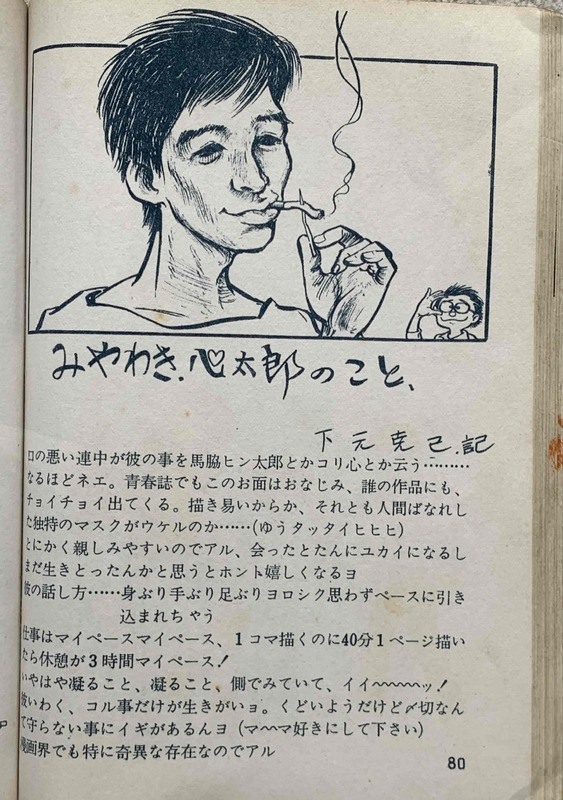 みやわき.心太郎のこと、
下元克己.記
口の悪い連中が彼の事を馬脇ヒン太郎とかコリ心とか云う………
なるほどネエ。青春誌でもこのお面はおなじみ、誰の作品にも、
チョイチョイ出てくる。描き易いからか、それとも人間ばなれし
た独特のマスクがウケルのか……(ゆうタッタイヒヒヒ)
とにかく親しみやすいのでアル、会ったとたんにユカイになるし
まだ生きとったんかと思うとホント嬉しくなるヨ
彼の話し方……身ぶり手ぶり足ぶりヨロシク思わずペースに引き
込まれちゃう
仕事はマイペースマイペース、1コマ描くのに40分1ページ描い
たら休憩が3時間マイペース!
いやはや凝ること、凝ること、側でみていて、イイ〜〜〜〜〜ッ!
彼いわく、コル事だけが生きがいョ。くどいようだけど〆切なん
て守らない事にイギがあるんヨ(マ〜〜マ好きにして下さい)
漫画界でも特に奇異な存在なのでアル
80